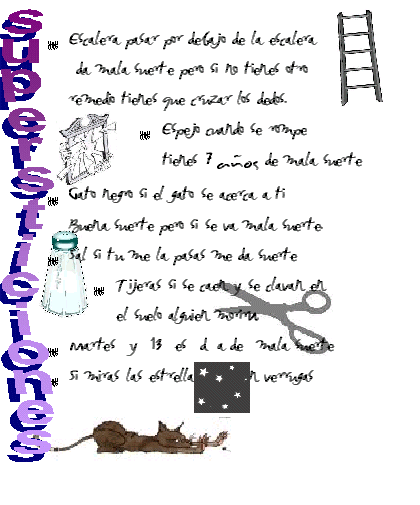 supersticiones
Escalera pasar por debajo de la escalera
da mala suerte pero si no tienes otro
remedio tienes que cruzar los dedos.
Espejo cuando se rompe
tienes 7 años de mala suerte
Gato negro si el gato se acerca a ti
Buena suerte pero si se va mala suerte
Sal si tu me la pasas me da suerte
Tijeras si se caen y se clavan en
el suelo alguien
Martes y 13 es d a de mala suerte
Si miras las estrella n verrugas